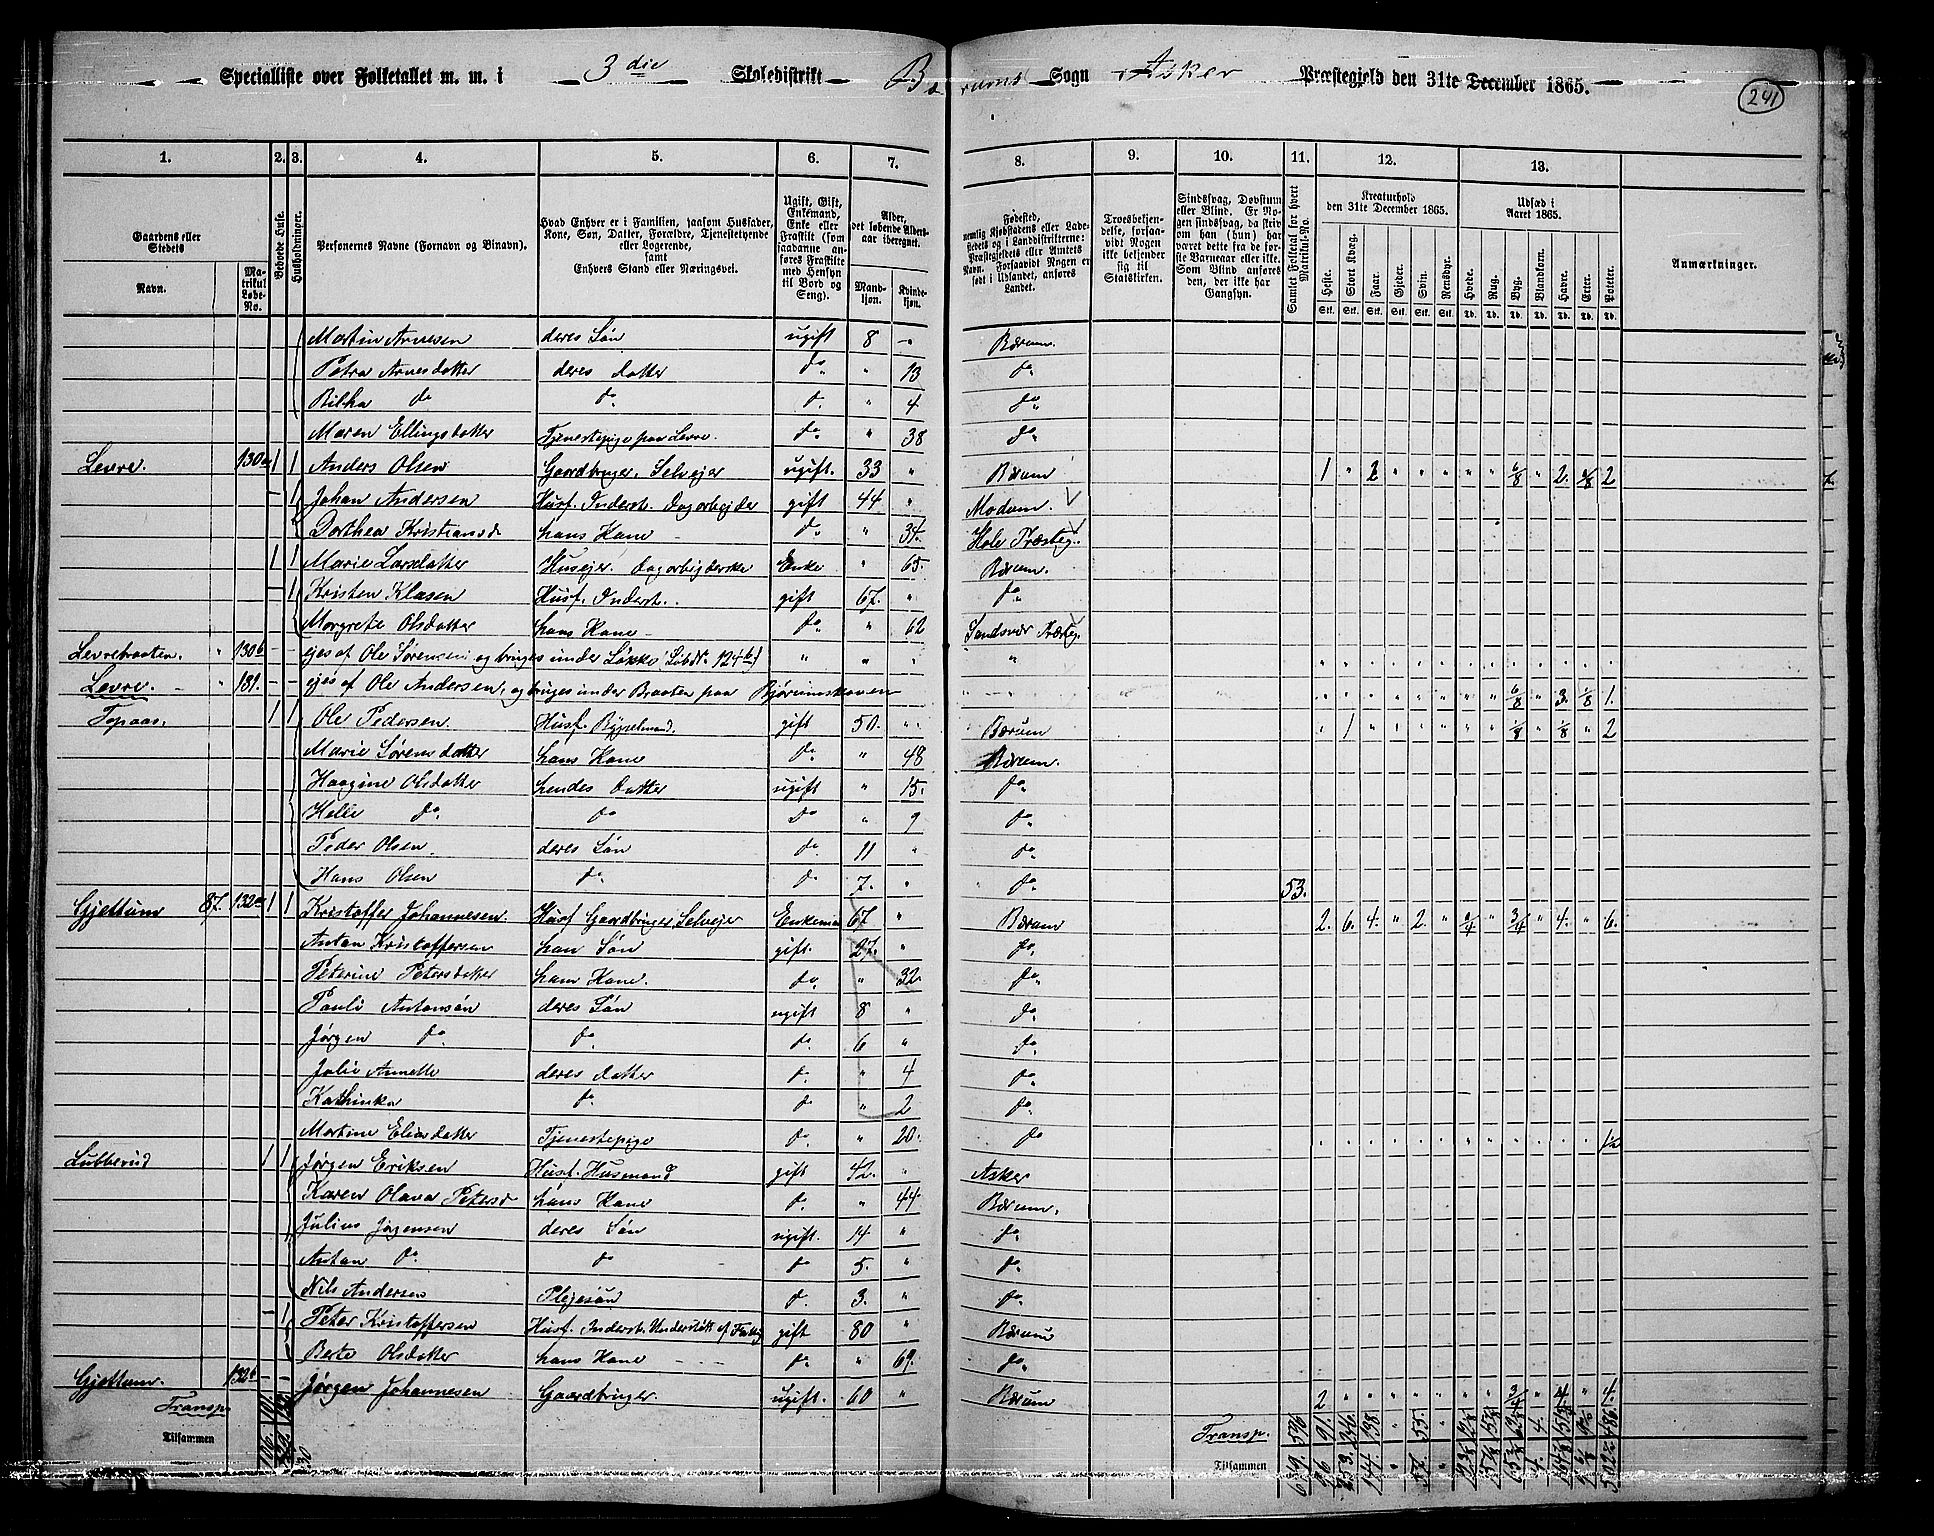 Specialliste over Folketallet m. m. i 3die Skoledistrikt Bærums Sogn Asker Præstegjeld den 31te December 1865.
241
1. 2. 3. 4. 5. 6. 7. 8. 9. 10. 11. 12. 13.
Gaardens eller Stedets
Navn.
Matrikul Løbe-No.
Beboede Huse.
Husholdninger.
Personernes Navne (Fornavn og Binavn).
Hvad Enhver er i Familien, saasom Husfader, Kone, Søn, Datter, Forældre, Tjenestetyende eller Logerende, samt Enhvers Stand eller Næringsvei.
Ugift, Gift, Enkemand, Enke eller Fraskilt (som saadanne anføres Fraskilte med Hensyn til Bord og Seng).
Alder, det løbende Aldersaar iberegnet.
Mandkjøn. Kvindekjøn.
Fødested, nemlig Kjøbstadens eller Ladestedets og i Landdistrikterne: Præstegjeldets eller Amtets Navn. Forsaavidt Nogen er født i Udlandet, anføres Landet.
Troesbekjendelse, forsaavidt Nogen ikke bekjender sig til Statskirken.
Sindssvag, Døvstum eller Blind. Er Nogen sindssvag, da skriv om han (hun) har været dette fra de første Barneaar eller ikke. Som Blind anføres den, der ikke har Gangsyn.
Samlet Folketal for hvert Matrikul-No.
Kreaturhold den 31te December 1865.
Heste. Stort Kvæg. Faar. Gjeder. Svin. Rensdyr.
Udsæd i Aaret 1865.
Hvede. Rug. Byg. Blandkorn. Havre. Erter. Poteter.
Anmærkninger.
Martin Arnesen deres Søn ugift 8 " Bærum.
Petra Arnesdatter deres Datter do " 13 do
Bilha do do do " 4 do
Maren Ellingsdatter Tjenestepige paa Levre. do " 38 do
Levre. 130a 1 1 Anders Olsen Gaardbruger, Selvejer ugift 33 " Bærum 1 " 2 " " " " " 6/8 " 2. 2/8 2
– 1 Johan Andersen Husf. Inderst. Dagarbejder gift 44 " Modum.
Dorthea Kristiansd hans Kone do " 34. Hole Præsteg.
1 1 Marie Larsdatter Husejer. Dagarbejderske Enke " 65. Bærum.
– 1 Kristen Klasen Husf. Inderst. gift 67. " do
Margrete Olsdatter hans Kone do " 62 Sandsvær Præsteg.
Levrebraaten. " 130b – – ejes af Ole Sørensen og bruges under Løkke (LøbNr. 124b) " " " "
Levre. " 131. – – ejes af Ole Andersen, og bruges under Braaten paa Bjørumskoven 6/8 " 3. 1/8 1.
Topaas. 1 1 Ole Pedersen. Husf. Bygselmand. gift 50. " Bærum " 1 " " " " " " 1/8 " 1/8 " 2
Marie Sørensdatter hans Kone do " 48 Bærum.
Haagine Olsdatter hendes Datter ugift " 15. do
Helle do do do " 9 do
Peder Olsen. deres Søn do 11 " do
Hans Olsen do do 7. " do 53.
Gjettum 87. 132a 1 1 Kristoffer Johannesen. Husf. Gaardbruger, Selvejer Enkemand 67. " Bærum 2. 6. 4. " 2. " 2/4 " 3/4 " 4. " 6.
Anton Kristoffersen hans Søn gift. 27. " do
Peterine Petersdatter hans Kone. do " 32. do
Pauli Antonsøn deres Søn ugift 8 " do
Jørgen do do do 6 " do
Julie Annette deres Datter do " 4 do
Kathinka do do " 2 do
Martine Eliasdatter Tjenestepige do " 20. do
Lubberud 1 1 Jørgen Eriksen Husf. Husmand gift 42. " Asker 1½
Karen Olava Petersd hans Kone do " 44. Bærum.
Julius Jørgensen deres Søn ugift. 14 " do
Anton do do do 5. " do
Nils Andersen Plejesøn do 3. " do
– 1 Peter Kristoffersen Husf. Inderst. Understøtt. af Fattig gift 80 " Bærum
Berte Olsdatter hans Kone do " 69. do
Gjettum. 132b – – Jørgen Johannesen Gaardbruger. ugift 60 " Bærum 2 " " " " " " " 3/4 " 4. " 4.
Transp. Transp. 596 91.
Tilsammen Tilsammen